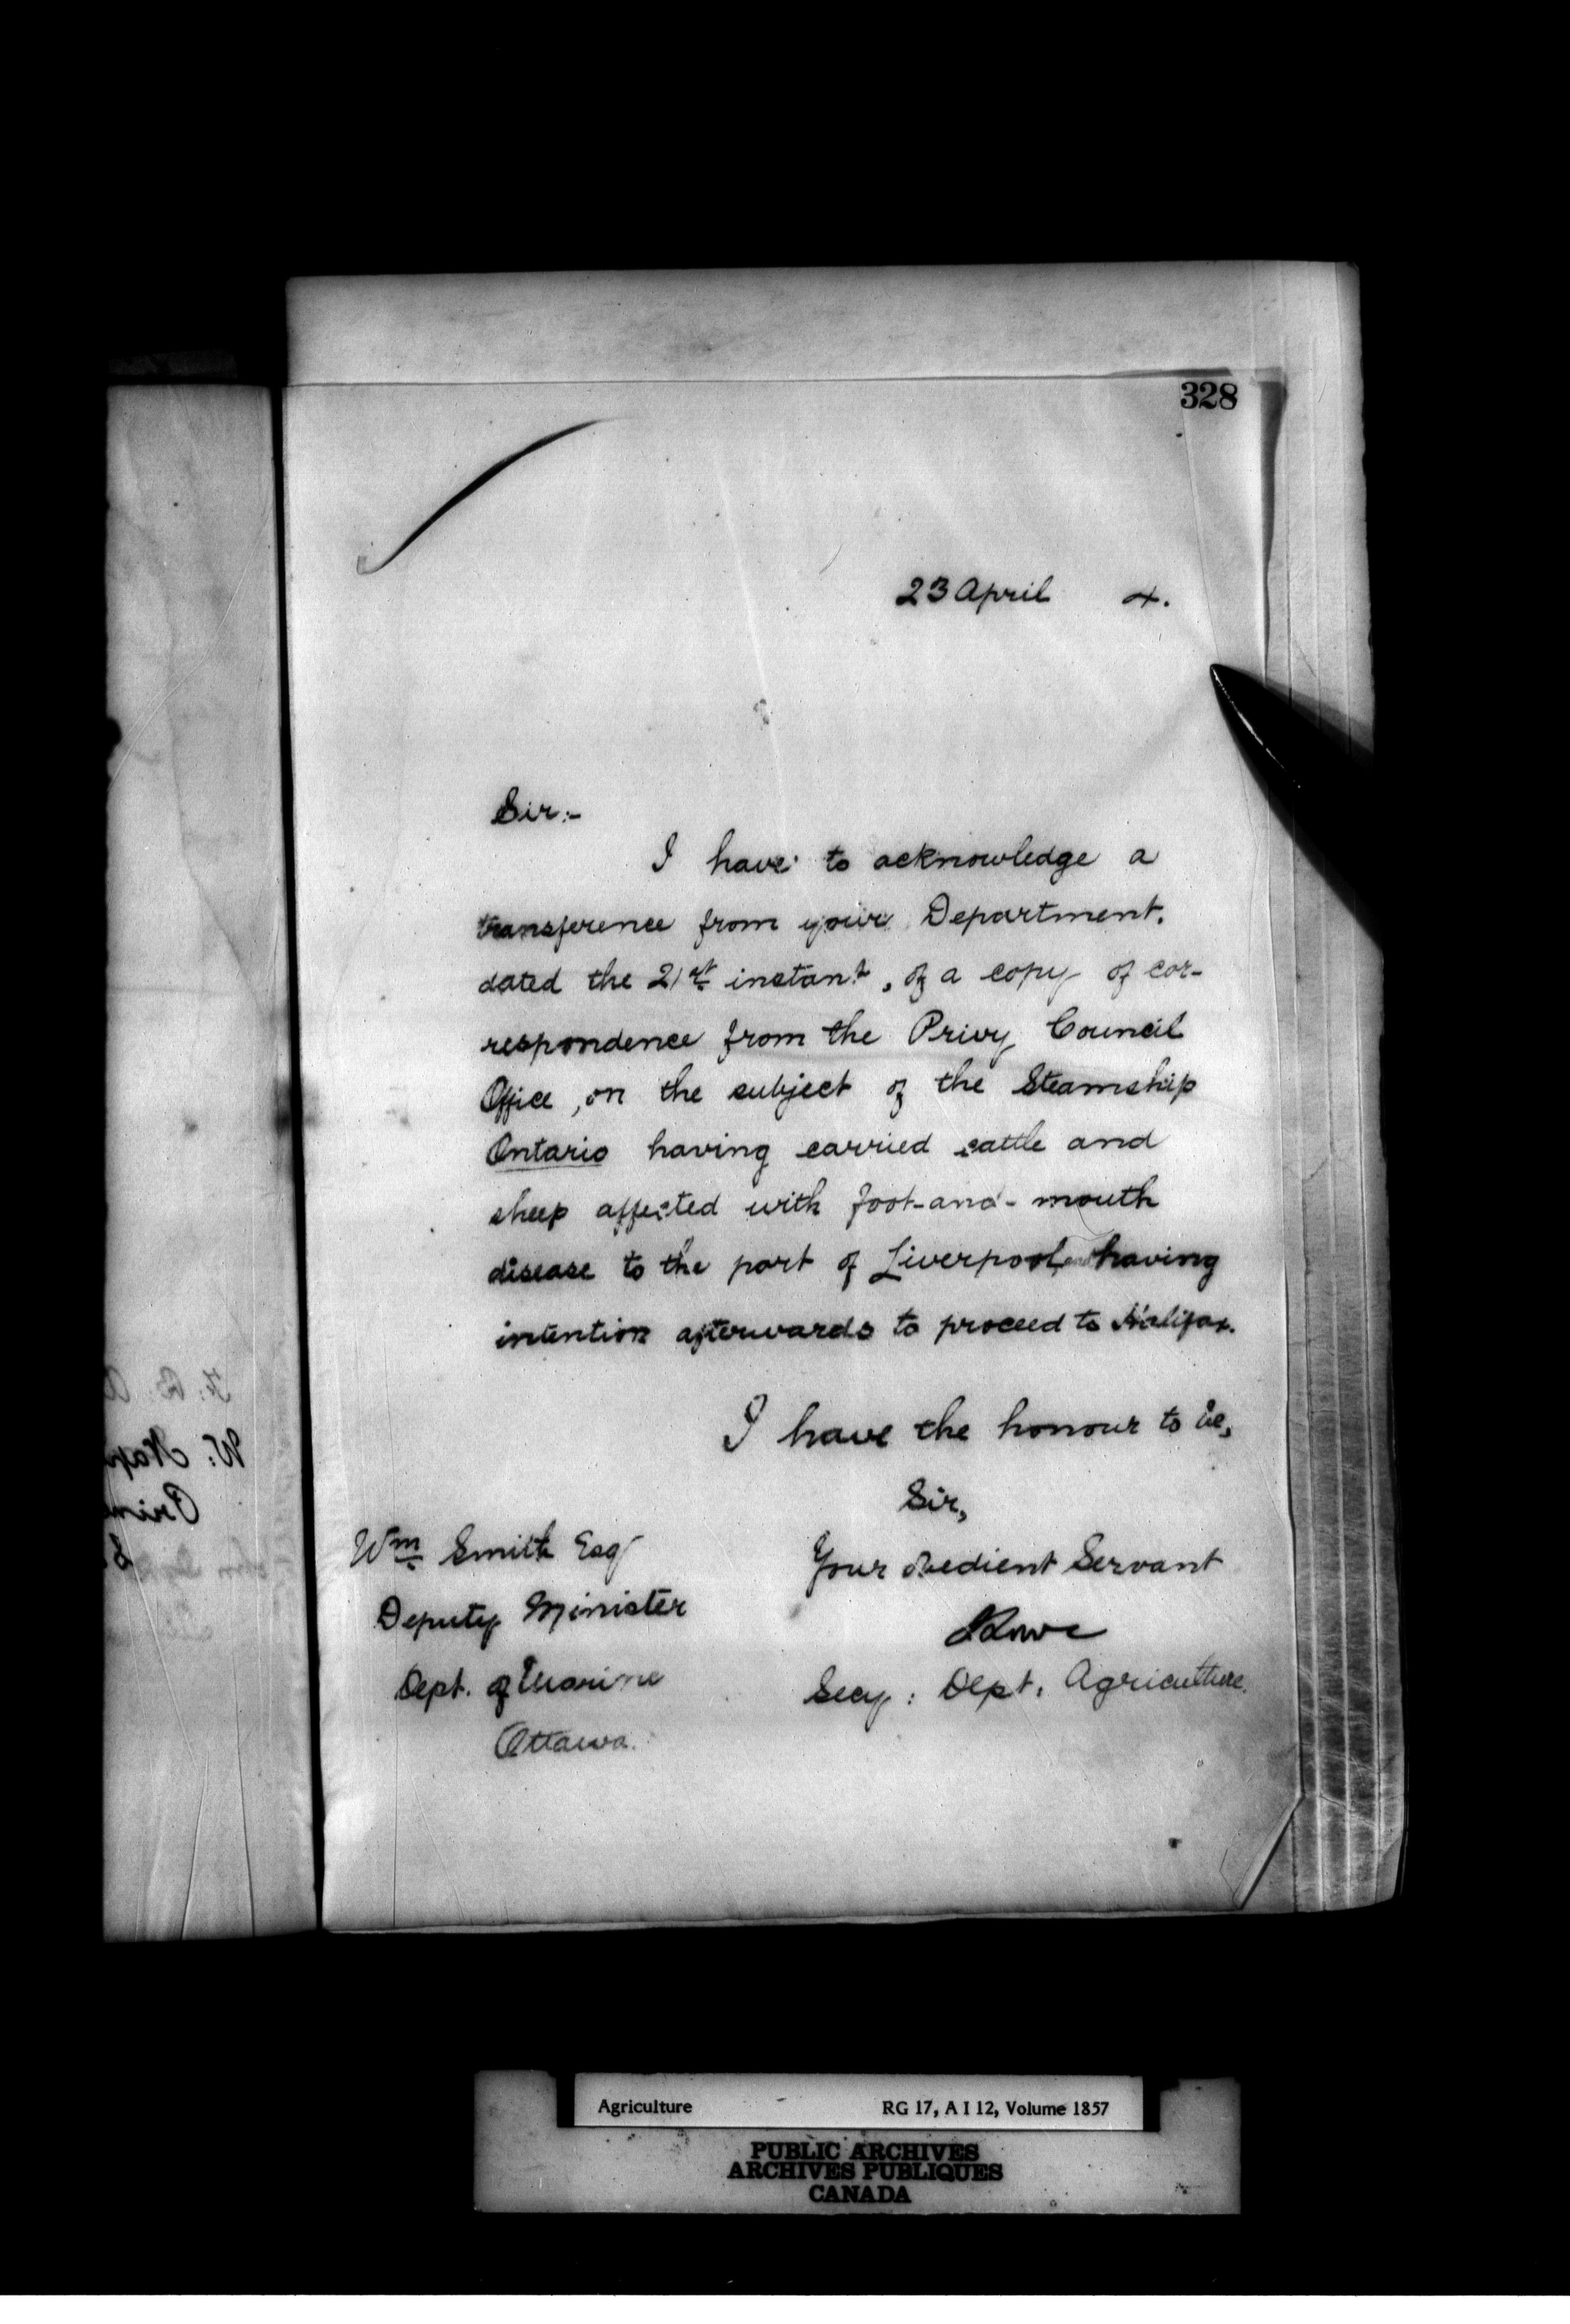 328
23 April 4.
Sir:-
I have to acknowledge a
transference from your Department,
dated the 21st instant, of a copy of cor-
respondence from the Privy Council
Office, on the subject of the Steamship
Ontario having carried cattle and
sheep affected with foot-and-mouth
disease to the port of Liverpool, and having
intention afterwards to proceed to Halifax.
I have the honour to be,
Sir,
Your obedient Servant
J Lowe
Secy: Dept. Agriculture.
Wm Smith Esq
Deputy Minister
Dept. of Marine
Ottawa.
Agriculture RG 17, A I 12, Volume 1857
PUBLIC ARCHIVES
ARCHIVES PUBLIQUES
CANADA